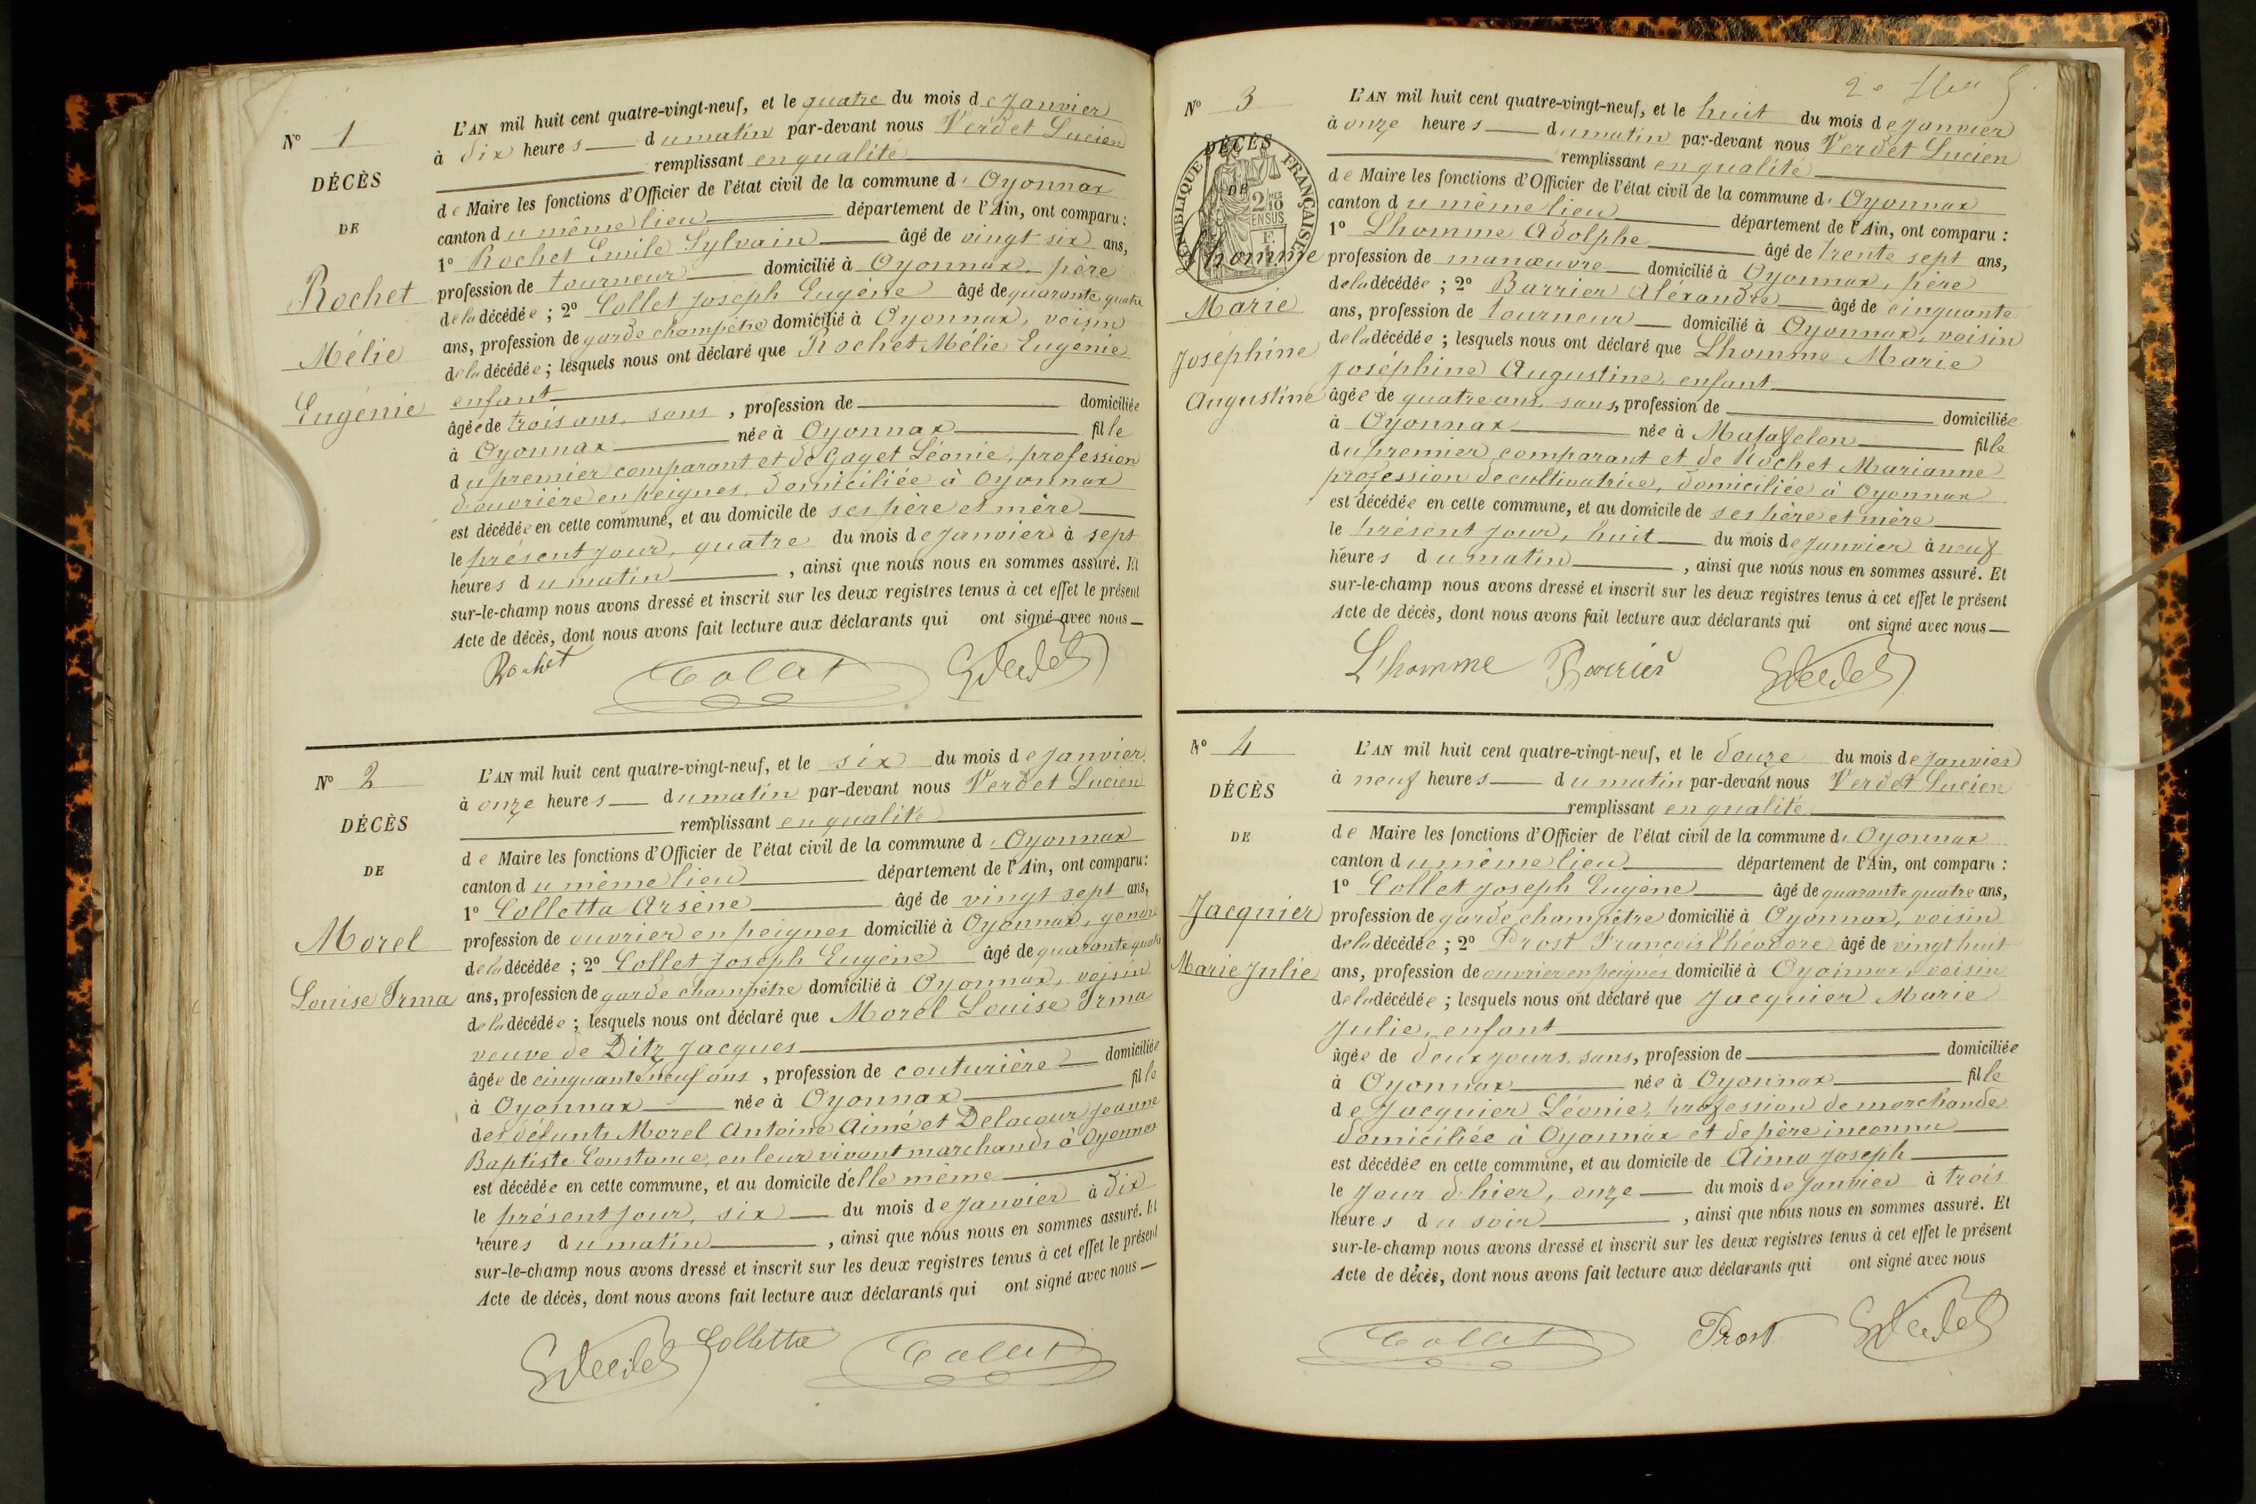 N° 1
DÉCÈS
DE
Rochet
Mélie
Eugénie
L'AN mil huit cent quatre-vingt-neuf, et le quatre du mois de Janvier
à dix heures du matin par-devant nous Verdet Lucien
remplissant en qualité
de Maire les fonctions d'Officier de l'état civil de la commune d'Oyonnax
canton du même lieu département de l'Ain, ont comparu :
1° Rochet Emile Sylvain âgé de vingt six ans,
profession de tourneur domicilié à Oyonnax, père
de la décédée ; 2° Collet Joseph Eugène âgé de quarante quatre
ans, profession de garde champêtre domicilié à Oyonnax, voisin
de la décédée ; lesquels nous ont déclaré que Rochet Mélie Eugénie
enfant
âgée de trois ans, sans, profession de domiciliée
à Oyonnax née à Oyonnax fille
du premier comparant et de Goyet Léonie, profession
d'ouvrière en peignes, domiciliée à Oyonnax
est décédée en cette commune, et au domicile de ses père et mère
le présent jour, quatre du mois de Janvier à sept
heures du matin, ainsi que nous nous en sommes assuré. Et
sur-le-champ nous avons dressé et inscrit sur les deux registres tenus à cet effet le présent
Acte de décès, dont nous avons fait lecture aux déclarants qui ont signé avec nous
Rochet Collet
N° 2
DÉCÈS
DE
Morel
Louise Irma
L'AN mil huit cent quatre-vingt-neuf, et le six du mois de Janvier
à onze heures du matin par-devant nous Verdet Lucien
remplissant en qualité
de Maire les fonctions d'Officier de l'état civil de la commune d'Oyonnax
canton du même lieu département de l'Ain, ont comparu :
1° Colletta Arsène âgé de vingt sept ans,
profession de ouvrier en peignes domicilié à Oyonnax, gendre
de la décédée ; 2° Collet Joseph Eugène âgé de quarante quatre
ans, profession de garde champêtre domicilié à Oyonnax, voisin
de la décédée ; lesquels nous ont déclaré que Morel Louise Irma
veuve de Ditz Jacques
âgée de cinquante neuf ans, profession de couturière domiciliée
à Oyonnax née à Oyonnax fille
des défunts Morel Antoine Aimé et Delacour Jeanne
Baptiste Constance, en leur vivant marchands à Oyonnax
est décédée en cette commune, et au domicile d'elle même
le présent jour, six du mois de Janvier à dix
heures du matin, ainsi que nous nous en sommes assuré. Et
sur-le-champ nous avons dressé et inscrit sur les deux registres tenus à cet effet le présent
Acte de décès, dont nous avons fait lecture aux déclarants qui ont signé avec nous
Colletta Collet
N° 3
DÉCÈS
DE
RÉPUBLIQUE FRANÇAISE
2/10 EN SUS
Lhomme
Marie
Joséphine
Augustine
L'AN mil huit cent quatre-vingt-neuf, et le huit du mois de Janvier
à onze heures du matin par-devant nous Verdet Lucien
remplissant en qualité
de Maire les fonctions d'Officier de l'état civil de la commune d'Oyonnax
canton du même lieu département de l'Ain, ont comparu :
1° Lhomme Adolphe âgé de trente sept ans,
profession de manœuvre domicilié à Oyonnax, père
de la décédée ; 2° Barrier Aléxandre âgé de cinquante
ans, profession de tourneur domicilié à Oyonnax, voisin
de la décédée ; lesquels nous ont déclaré que Lhomme Marie
Joséphine Augustine, enfant
âgée de quatre ans, sans, profession de domiciliée
à Oyonnax née à Matafelon fille
du premier comparant et de Rochet Marianne
profession de cultivatrice, domiciliée à Oyonnax
est décédée en cette commune, et au domicile de ses père et mère
le présent jour, huit du mois de Janvier à neuf
heures du matin, ainsi que nous nous en sommes assuré. Et
sur-le-champ nous avons dressé et inscrit sur les deux registres tenus à cet effet le présent
Acte de décès, dont nous avons fait lecture aux déclarants qui ont signé avec nous
L'homme Barrier
N° 4
DÉCÈS
DE
Jacquier
Marie Julie
L'AN mil huit cent quatre-vingt-neuf, et le douze du mois de Janvier
à neuf heures du matin par-devant nous Verdet Lucien
remplissant en qualité
de Maire les fonctions d'Officier de l'état civil de la commune d'Oyonnax
canton du même lieu département de l'Ain, ont comparu :
1° Collet Joseph Eugène âgé de quarante quatre ans,
profession de garde champêtre domicilié à Oyonnax, voisin
de la décédée ; 2° Prost François Théodore âgé de vingt huit
ans, profession de ouvrier en peignes domicilié à Oyonnax, voisin
de la décédée ; lesquels nous ont déclaré que Jacquier Marie
Julie, enfant
âgée de deux jours, sans, profession de domiciliée
à Oyonnax née à Oyonnax fille
de Jacquier Léonie, profession de marchande
domiciliée à Oyonnax et de père inconnu
est décédée en cette commune, et au domicile de Aima Joseph
le jour d'hier, onze du mois de Janvier à trois
heures du soir, ainsi que nous nous en sommes assuré. Et
sur-le-champ nous avons dressé et inscrit sur les deux registres tenus à cet effet le présent
Acte de décès, dont nous avons fait lecture aux déclarants qui ont signé avec nous
Collet Prost